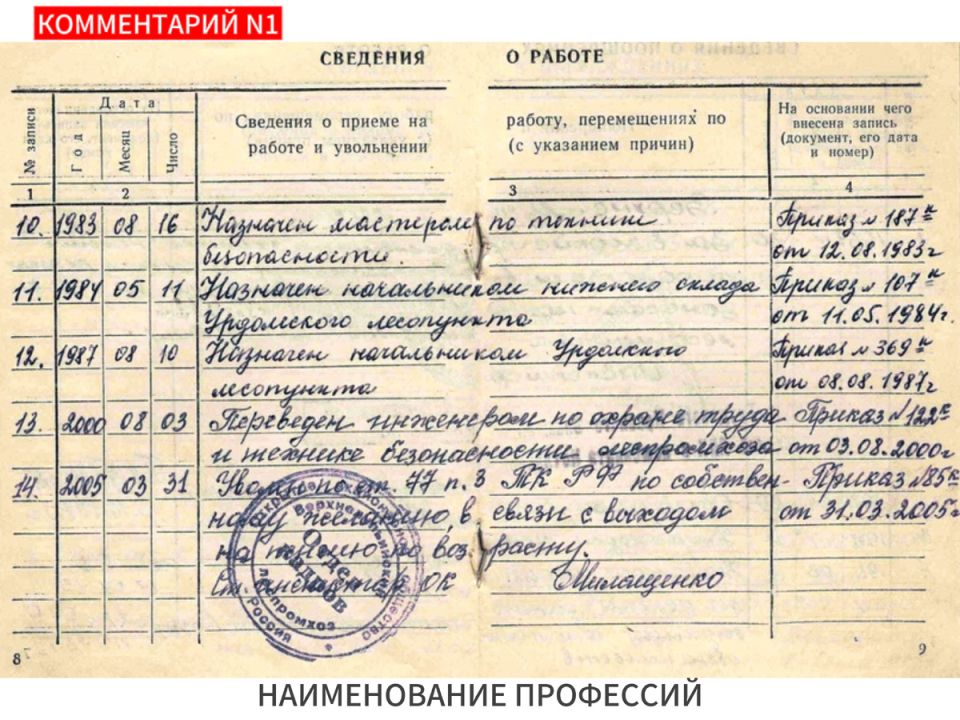 КОММЕНТАРИЙ N1
СВЕДЕНИЯ О РАБОТЕ
№ записи
Дата
Год
Месяц
Число
Сведения о приеме на работу, перемещениях по
работе и увольнении (с указанием причин)
На основании чего
внесена запись
(документ, его дата
и номер)
1 2 3 4
10. 1983 08 16 Назначен мастером по технике Приказ № 187 к
безопасности. от 12.08.1983г
11. 1984 05 11 Назначен начальником нижнего склада Приказ № 107 к
Урдомского лесопункта от 11.05.1984г.
12. 1987 08 10 Назначен начальником Урдомского Приказ № 369 к
лесопункта от 08.08.1987г
13. 2000 08 03 Переведен инженером по охране труда Приказ № 122 к
и технике безопасности леспромхоза от 03.08.2000г
14. 2005 03 31 Уволен по ст. 77 п. 3 ТК РФ по собствен- Приказ № 85 к
ному желанию, в связи с выходом от 31.03.2005г
на пенсию по возрасту.
Ст. инспектор ОК
Отдел
кадров
леспромхоз
РОССИЯ
8 9
НАИМЕНОВАНИЕ ПРОФЕССИЙ